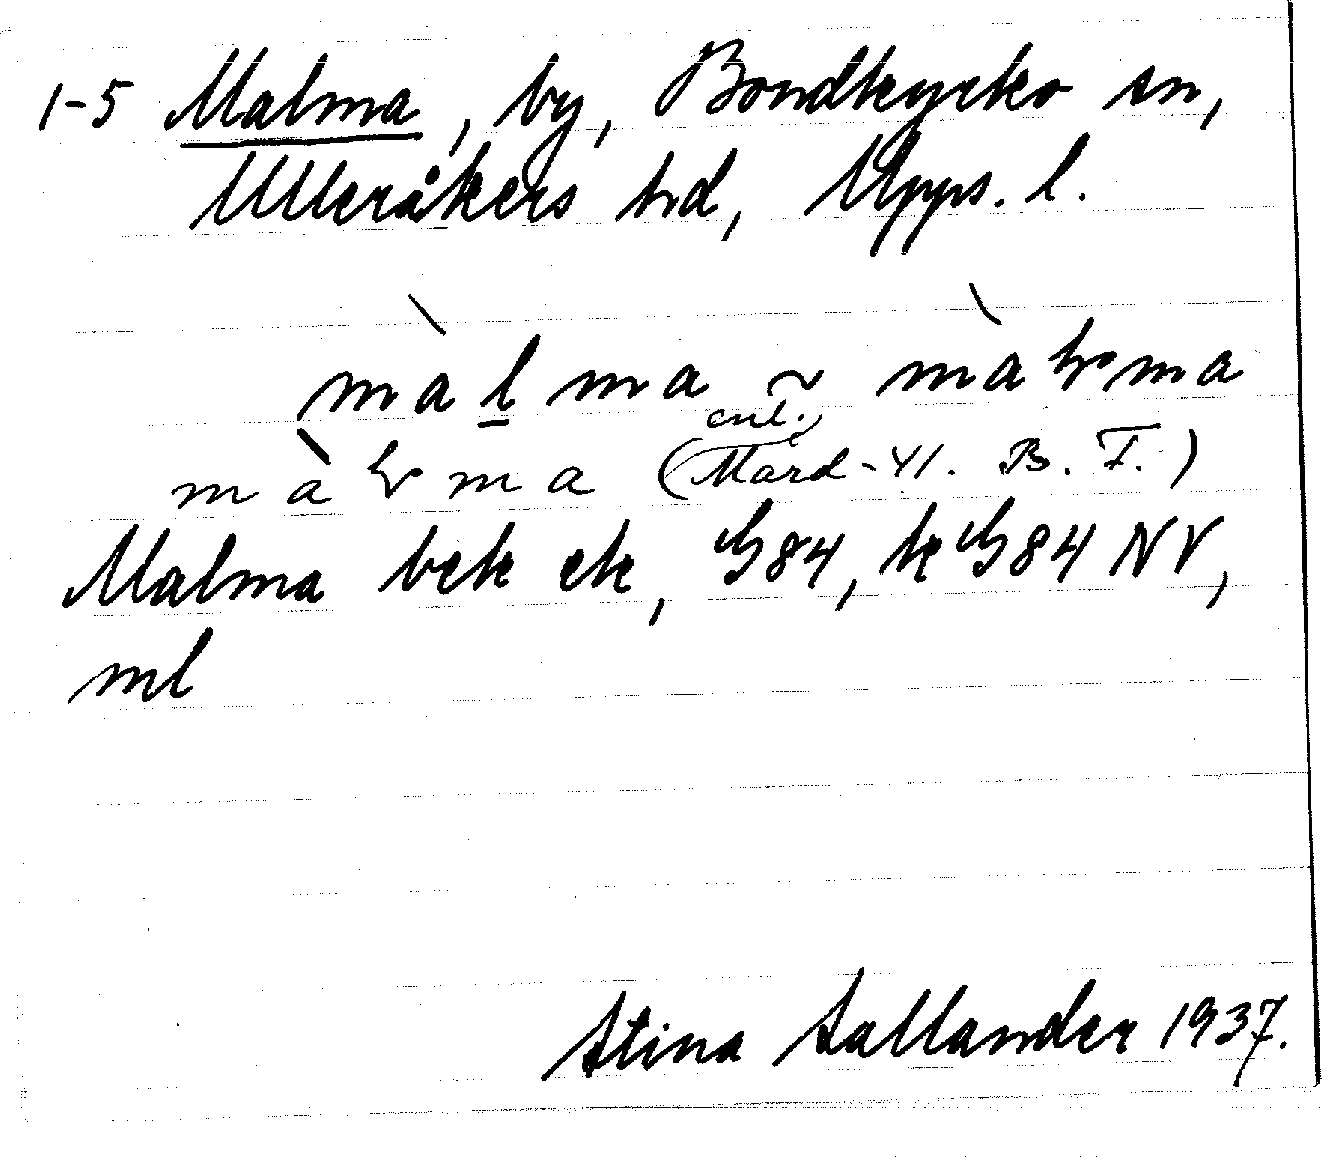 1-5 Malma, by, Bondkyrko sn,
Ulleråkers hd, Upps. l.
màl̲ma ~ màɽma
enl.
màɽma (Mard-Yl. B. F.)
Malma bek ek, G84, kG84 NV,
ml
Stina Sallander 1937.